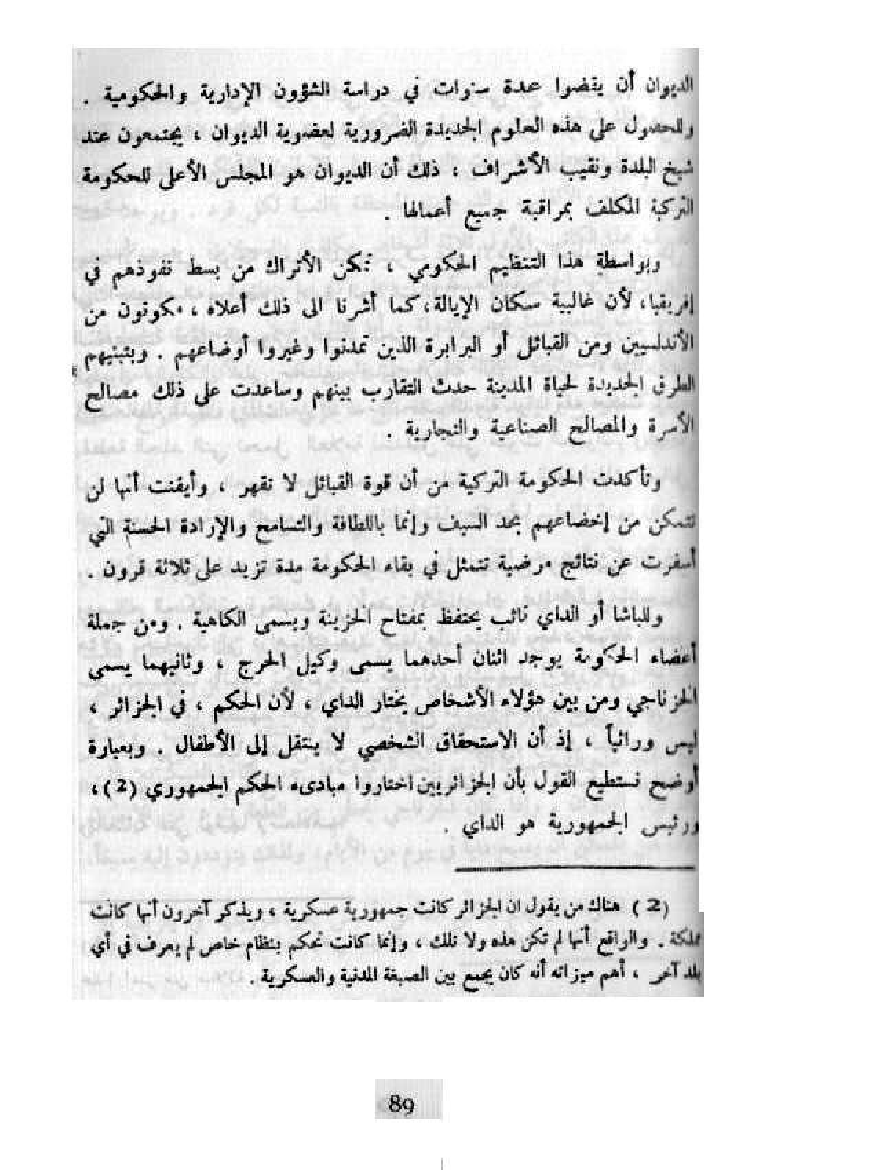 الديوان أن يقضوا عدة سنوات في دراسة الشؤون الإدارية والحكومية .
وللحصول على هذه العلوم الجديدة الضرورية لعضوية الديوان ، يجتمعون عند
شيخ البلدة ونقيب الأشراف ؛ ذلك أن الديوان هو المجلس الأعلى للحكومة
التركية المكلف بمراقبة جميع أعمالها .
وبواسطة هذا التنظيم الحكومي ، تمكن الأتراك من بسط نفوذهم في
إفريقيا، لأن غالبية سكان الإيالة، كما أشرنا الى ذلك أعلاه ، مكونون من
الأندلسيين ومن القبائل أو البرابرة الذين تمدنوا وغيروا أوضاعهم . وبتبنيهم
الطرق الجديدة لحياة المدينة حدث التقارب بينهم وساعدت على ذلك مصالح
الأسرة والمصالح الصناعية والتجارية .
وتأكدت الحكومة التركية من أن قوة القبائل لا تقهر ، وأيقنت أنها لن
تتمكن من إخضاعهم بحد السيف وإنما باللطافة والتسامح والإرادة الحسنة التي
أسفرت عن نتائج مرضية تتمثل في بقاء الحكومة مدة تزيد على ثلاثة قرون .
وللباشا أو الداي نائب يحتفظ بمفتاح الخزينة ويسمى الكاهية . ومن جملة
أعضاء الحكومة يوجد اثنان أحدهما يسمى وكيل الخرج ، وثانيهما يسمى
الخزناجي ومن بين هؤلاء الأشخاص يختار الداي ، لأن الحكم ، في الجزائر ،
ليس وراثياً ، إذ أن الاستحقاق الشخصي لا ينتقل إلى الأطفال . وبعبارة
أوضح نستطيع القول بأن الجزائريين اختاروا مبادىء الحكم الجمهوري (2)،
ورئيس الجمهورية هو الداي .
(2) هناك من يقول ان الجزائر كانت جمهورية عسكرية ، ويذكر آخرون أنها كانت
مملكة . والواقع أنها لم تكن هذه ولا تلك ، وإنما كانت تحكم بنظام خاص لم يعرف في أي
بلد آخر ، أهم ميزاته أنه كان يجمع بين الصبغة المدنية والعسكرية .
89